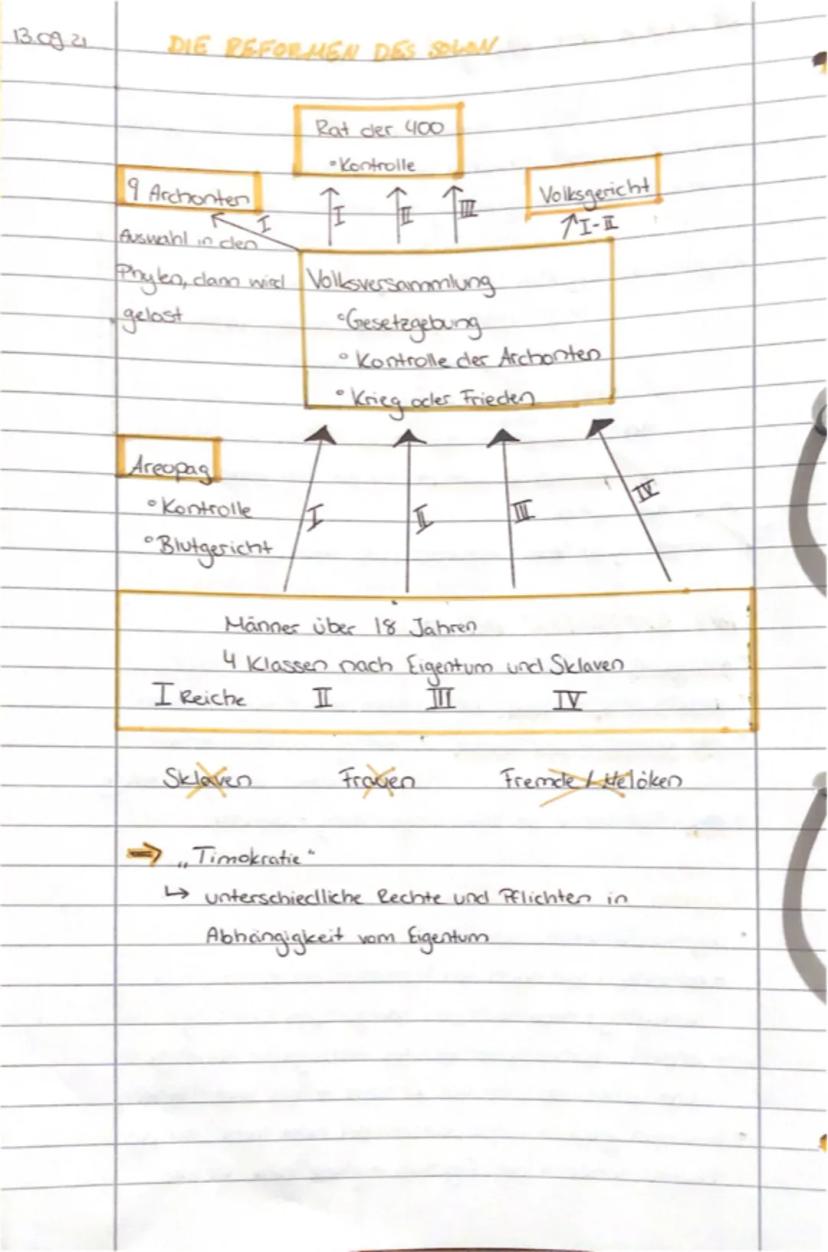 13.09.21
DIE REFORMEN DES SOLON
Rat der 400
°Kontrolle
9 Archonten
Volksgericht
I
I
II
III
I-II
Auswahl in den
Phylen, dann wird
gelost
Volksversammlung
°Gesetzgebung
° Kontrolle der Archonten
° Krieg oder Frieden
Areopag
°Kontrolle
°Blutgericht
I
II
III
IV
Männer über 18 Jahren
4 Klassen nach Eigentum und Sklaven
I Reiche II III IV
Sklaven Frauen Fremde / Metöken
⇒ „Timokratie“
↳ unterschiedliche Rechte und Pflichten in
Abhängigkeit vom Eigentum